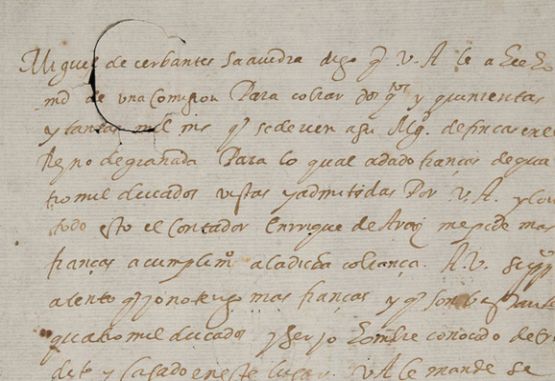 Miguel de cerbantes Saavedra digo q V. A le a Hecho
md de una Comision Para cobrar dos qtos y quinientas
y tantas mil mrs q se deven a su Mgd. de fincas en el
Reyno de granada Para lo qual a dado fianças de qua
tro mil ducados vistas y admitidas Por V. A. y con
todo esto el Contador Enrrique de Arayz me pide mas
fianças a cumplimo a la dicha cobrança. A V. supco
atento q yo no tengo mas fianças y q son bastante
quatro mil ducados y ser yo Hombre conocido de
dito y Casado en este lugar V A le mande se